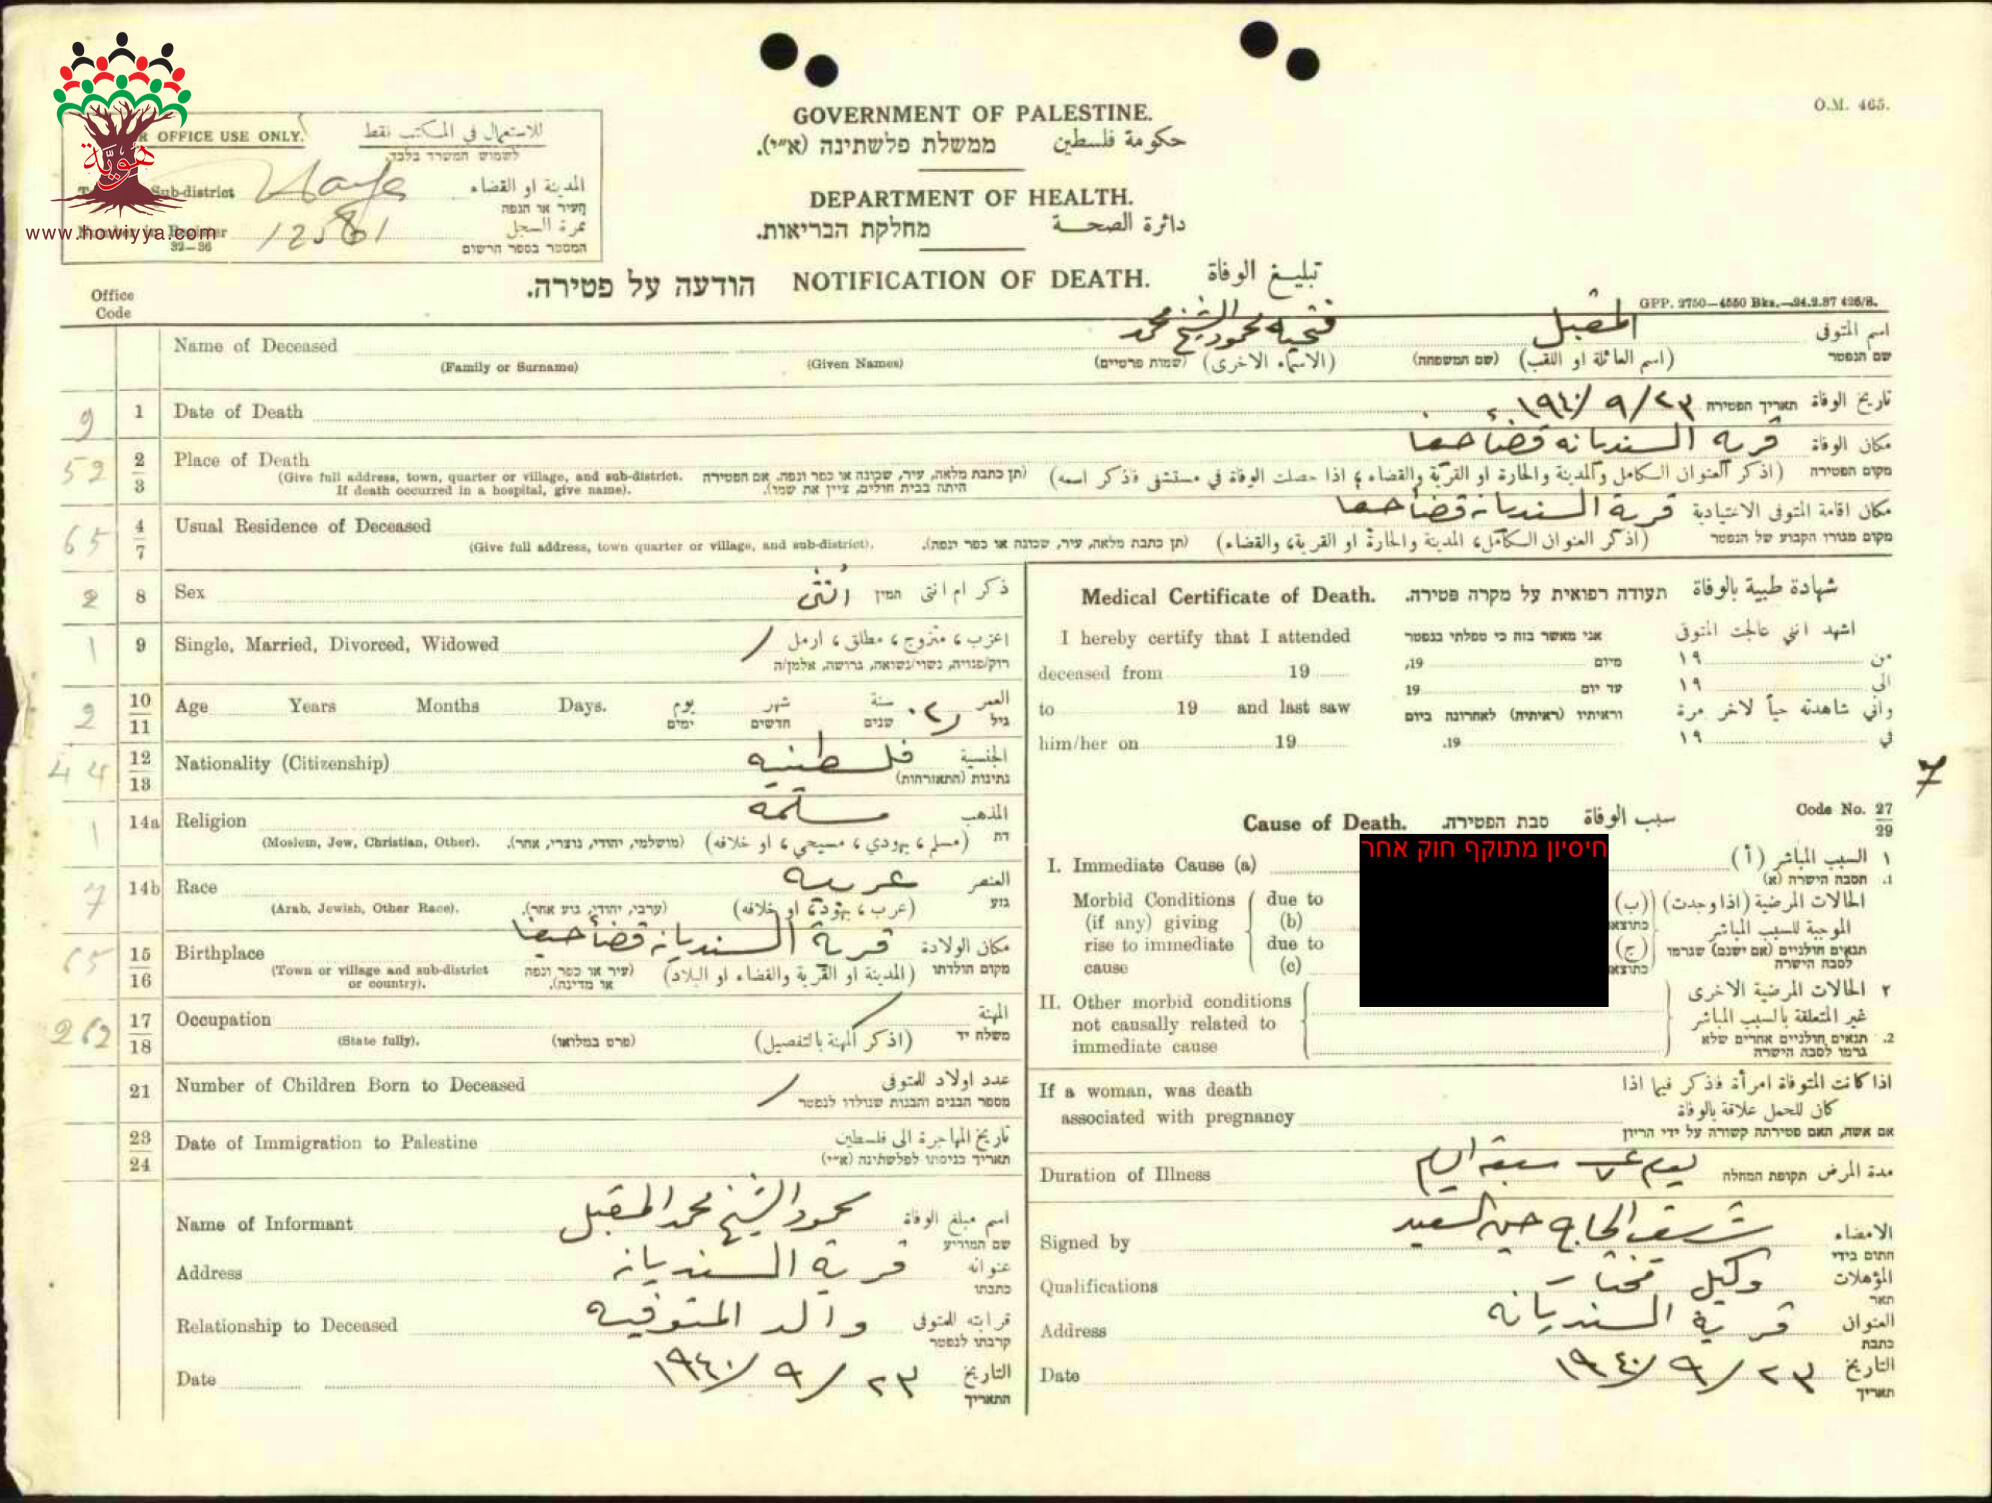 O.M. 465.
GOVERNMENT OF PALESTINE.
حكومة فلسطين ממשלת פלשתינה (א״י).
DEPARTMENT OF HEALTH.
دائرة الصحة מחלקת הבריאות.
OFFICE USE ONLY. للاستعمال في المكتب نقط
לשמוש המשרד בלבד.
Sub-district المدينة او القضاء
העיר או הנפה
هوية
www.howiyya.com
12581 نمرة السجل
32—36 המספר בספר הרשום
NOTIFICATION OF DEATH. تبليغ الوفاة
הודעה על פטירה.
GPP. 2750—4550 Bks.—24.2.37 426/S.
Office
Code
Name of Deceased فتحيه محمود الشيخ محمد المقبل اسم المتوفى
שם הנפטר
(Family or Surname) (Given Names) (שמות פרטיים) (الاسماء الاخرى) (שם המשפחה) (اسم العائلة او اللقب)
9 1 Date of Death ٢٣/٩/١٩٤٠ תאריך הפטירה تاريخ الوفاة
52 2 3 Place of Death قرية السنديانه قضأ حيفا مكان الوفاة
מקום הפטירה
(Give full address, town, quarter or village, and sub-district.
If death occurred in a hospital, give name).
(תן כתבת מלאה, עיר, שכונה או כפר ונפה. אם הפטירה
היתה בבית חולים, ציין את שמו).
(اذكر العنوان الكامل والمدينة والحارة او القرية والقضاء ، اذا حصلت الوفاة في مستشفى فذكر اسمه)
65 4 7 Usual Residence of Deceased قرية السنديانه قضأ حيفا مكان اقامة المتوفى الاعتيادية
מקום מגורו הקבוע של הנפטר
(Give full address, town quarter or village, and sub-district).
(תן כתבת מלאה, עיר, שכונה או כפר ונפה).
(اذكر العنوان الكامل، المدينة والحارة او القرية، والقضاء)
2 8 Sex انثى המין ذكر ام انثى
1 9 Single, Married, Divorced, Widowed / اعزب ، متزوج ، مطلق ، ارمل
רוק/פנויה, נשוי/נשואה, גרושה, אלמן/ה
2 10 11 Age Years Months Days. يوم شهر سنة العمر
ימים חדשים שנים גיל
44 12 13 Nationality (Citizenship) الجنسية
נתינות (התאזרחות)
1 14a Religion مسلمة المذهب
דת
(Moslem, Jew, Christian, Other). (מושלמי, יהודי, נוצרי, אחר). (مسلم ، يهودي ، مسيحي ، او خلافه)
7 14b Race عربيه العنصر
גזע
(Arab, Jewish, Other Race). (ערבי, יהודי, גזע אחר). (عرب ، يهود، او خلافه)
65 15 16 Birthplace قرية السنديانه قضأ حيفا مكان الولادة
מקום הולדתו
(Town or village and sub-district
or country).
(עיר או כפר ונפה
או מדינה).
(المدينة او القرية والقضاء او البلاد)
262 17 18 Occupation / المهنة
משלח יד
(State fully). (פרט במלואו) (اذكر المهنة بالتفصيل)
21 Number of Children Born to Deceased / عدد اولاد للمتوفى
מספר הבנים והבנות שנולדו לנפטר
23 24 Date of Immigration to Palestine تاريخ المهاجرة الى فلسطين
תאריך כניסתו לפלשתינה (א״י)
Name of Informant محمود الشيخ محمد المقبل اسم مبلغ الوفاة
שם המודיע
Address قرية السنديانه عنوانه
כתבתו
Relationship to Deceased والد المتوفيه قرابته للمتوفى
קרבתו לנפטר
Date ٢٣/٩/١٩٤٠ التاريخ
התאריך
Medical Certificate of Death. תעודה רפואית על מקרה פטירה. شهادة طبية بالوفاة
I hereby certify that I attended אני מאשר בזה כי טפלתי בנפטר اشهد انني عالجت المتوفى
deceased from 19 מיום 19, من ١٩
to 19 and last saw עד יום 19 الى ١٩
וראיתיו (ראיתיה) לאחרונה ביום واني شاهدته حياً لاخر مرة
him/her on 19 19. في ١٩
7
Cause of Death. סבת הפטירה. سبب الوفاة Code No. 27
29
חיסיון מתוקף חוק אחר
I. Immediate Cause (a) ١ السبب المباشر (أ)
1. הסבה הישרה (א)
Morbid Conditions due to الحالات المرضية (اذا وجدت) (ب)
(if any) giving (b) الموجبة للسبب المباشر
rise to immediate due to תנאים חולניים (אם ישנם) שגרמו (ج)
cause (c) לסבה הישרה
II. Other morbid conditions ٢ الحالات المرضية الاخرى
not causally related to غير المتعلقة بالسبب المباشر
immediate cause 2. תנאים חולניים אחרים שלא
גרמו לסבה הישרה
If a woman, was death اذا كانت المتوفاة امرأة فذكر فيما اذا
associated with pregnancy كان للحمل علاقة بالوفاة
אם אשה, האם פטירתה קשורה על ידי הריון
Duration of Illness سبعة ايام תקופת המחלה مدة المرض
Signed by الحاج حسن السعيد الامضاء
חתום בידי
Qualifications وكيل مختار المؤهلات
תאר
Address قرية السنديانه العنوان
כתבת
Date ٢٣/٩/١٩٤٠ التاريخ
תאריך